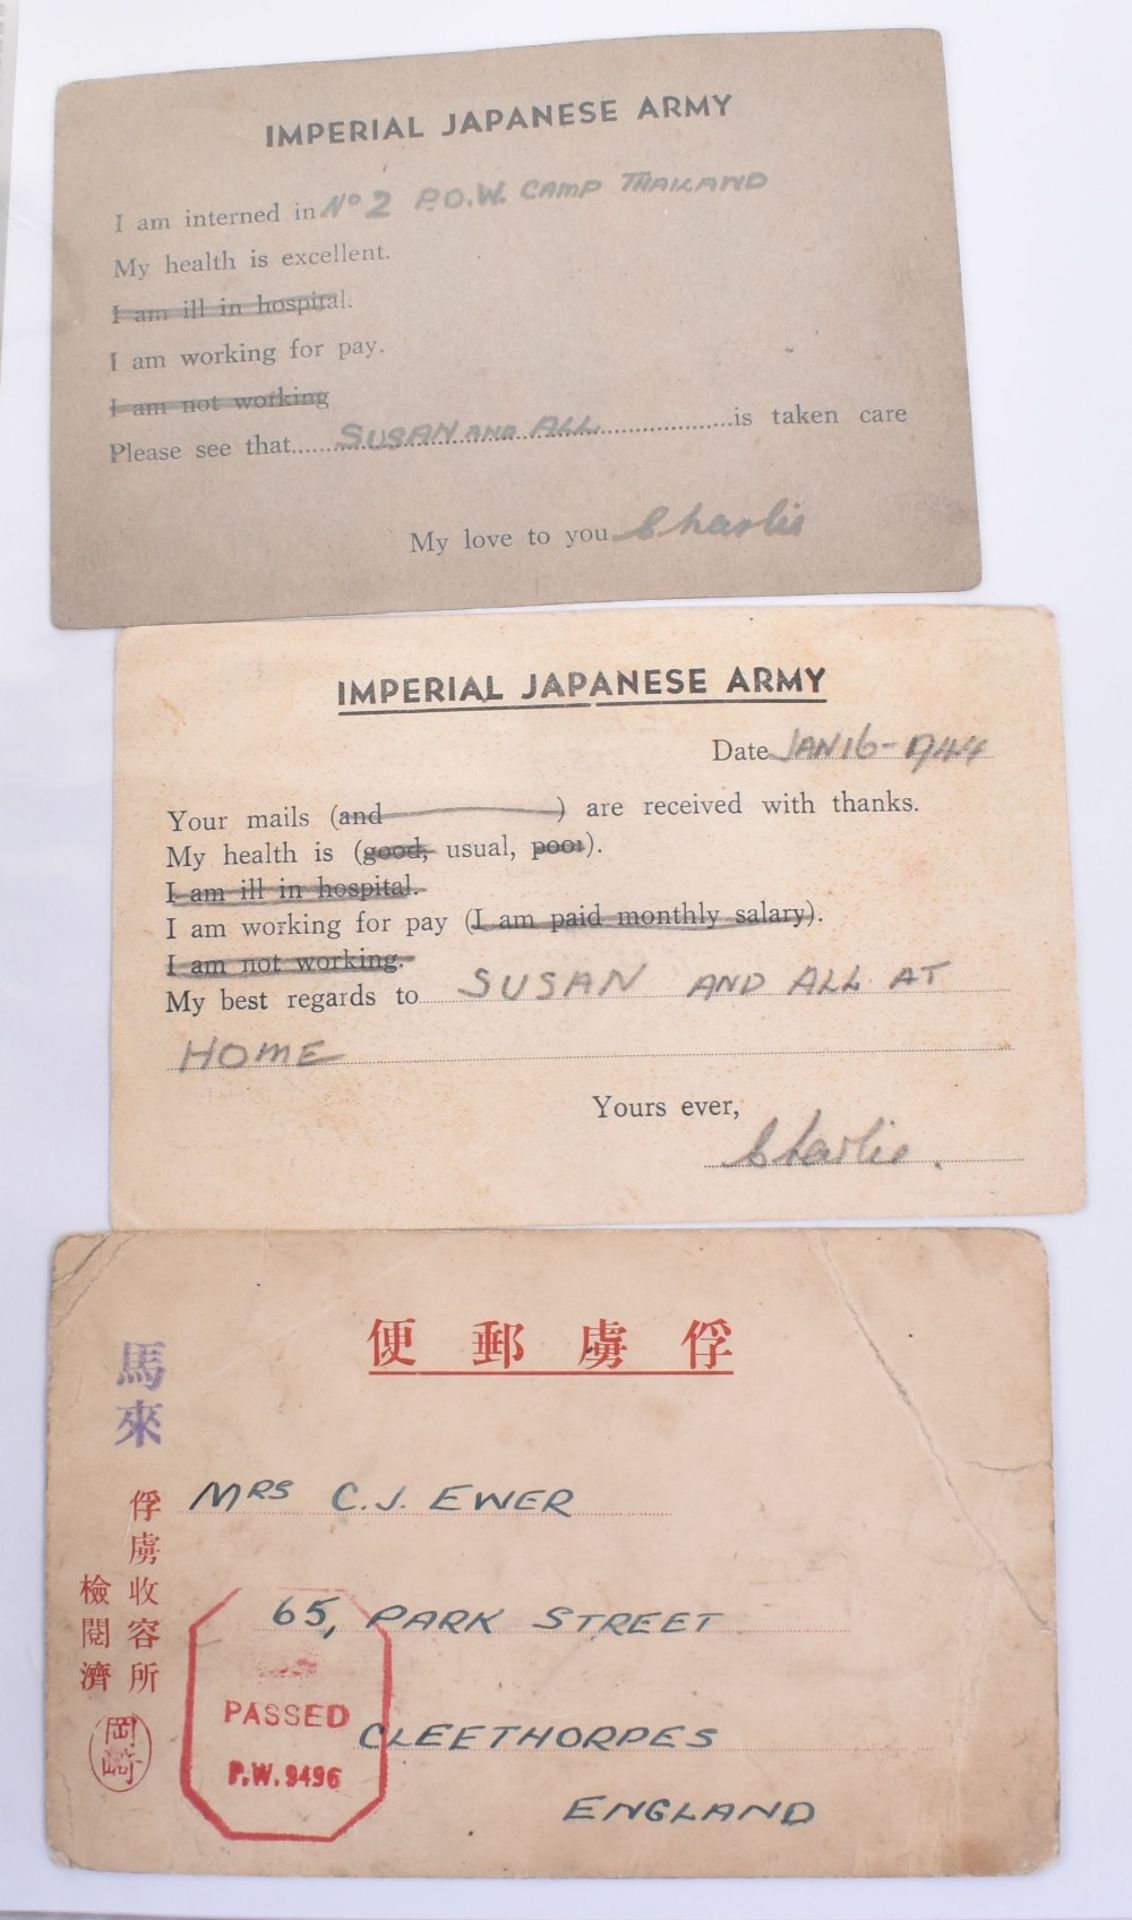 IMPERIAL JAPANESE ARMY
I am interned in Nº 2 P.O.W. CAMP THAILAND
My health is excellent.
I am ill in hospital.
I am working for pay.
I am not working
Please see that SUSAN AND ALL is taken care
My love to you Charlie
IMPERIAL JAPANESE ARMY
Date JAN 16 - 1944
Your mails (and ) are received with thanks.
My health is (good, usual, poor).
I am ill in hospital.
I am working for pay (I am paid monthly salary).
I am not working.
My best regards to SUSAN AND ALL AT
HOME
Yours ever,
Charlie.
俘虜郵便
馬來
俘虜收容所
檢閱濟
岡崎
MRS C.J. EWER
65, PARK STREET
CLEETHORPES
ENGLAND
PASSED
P.W. 9496